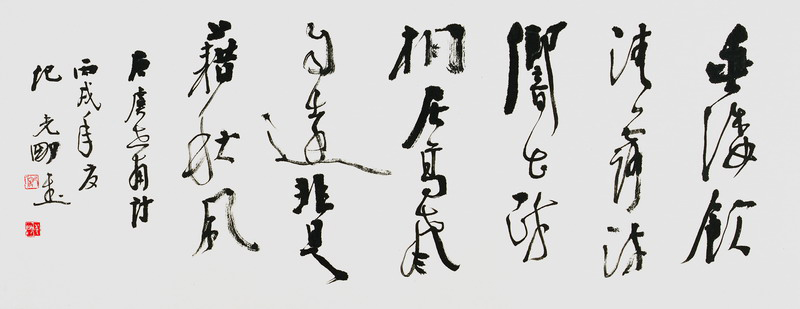 垂緌飲
清露流
響出疏
桐居高聲
自遠非是
藉秋風
唐虞世南詩
丙戌年夏
纪光明書